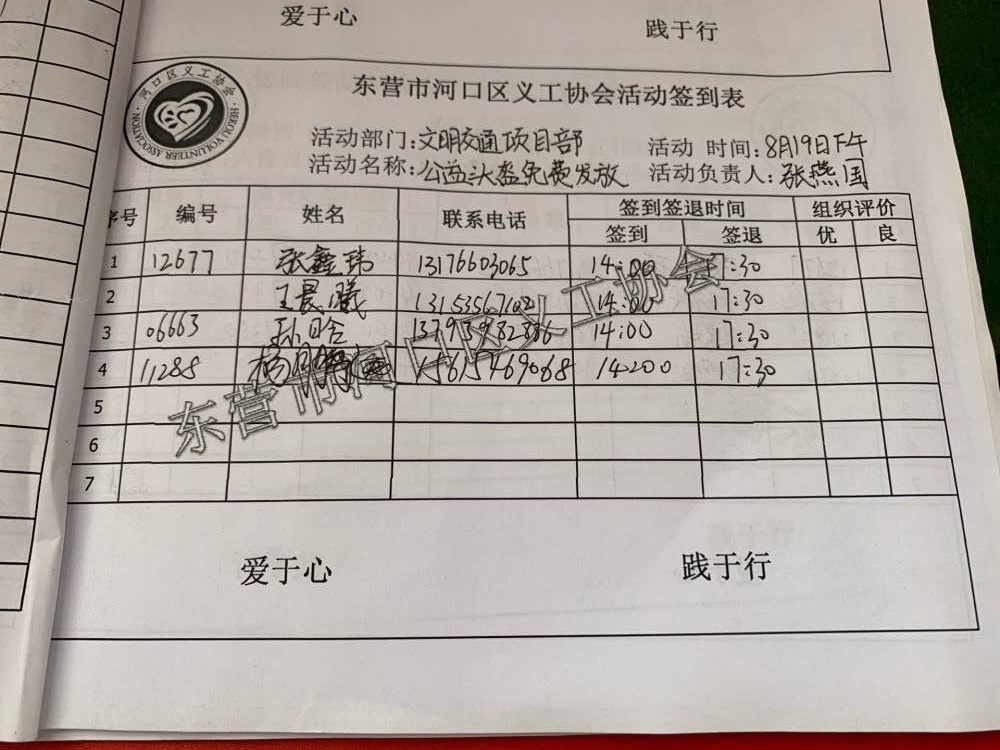 爱于心 践于行
河口区义工协会
HEKOU VOLUNTEER ASSOCIATION
东营市河口区义工协会活动签到表
活动部门:文明交通项目部 活动 时间:8月19日下午
活动名称:公益头盔免费发放 活动负责人:张燕国
序号 编号 姓名 联系电话 签到签退时间 组织评价
签到 签退 优 良
1 12677 张鑫玮 13176603065 14:00 17:30
2 王晨曦 14:00 17:30
3 06663 孙晗 14:00 17:30
4 11288 杨 15615469068 14:00 17:30
5
6
7
东营市河口区义工协会
爱于心 践于行